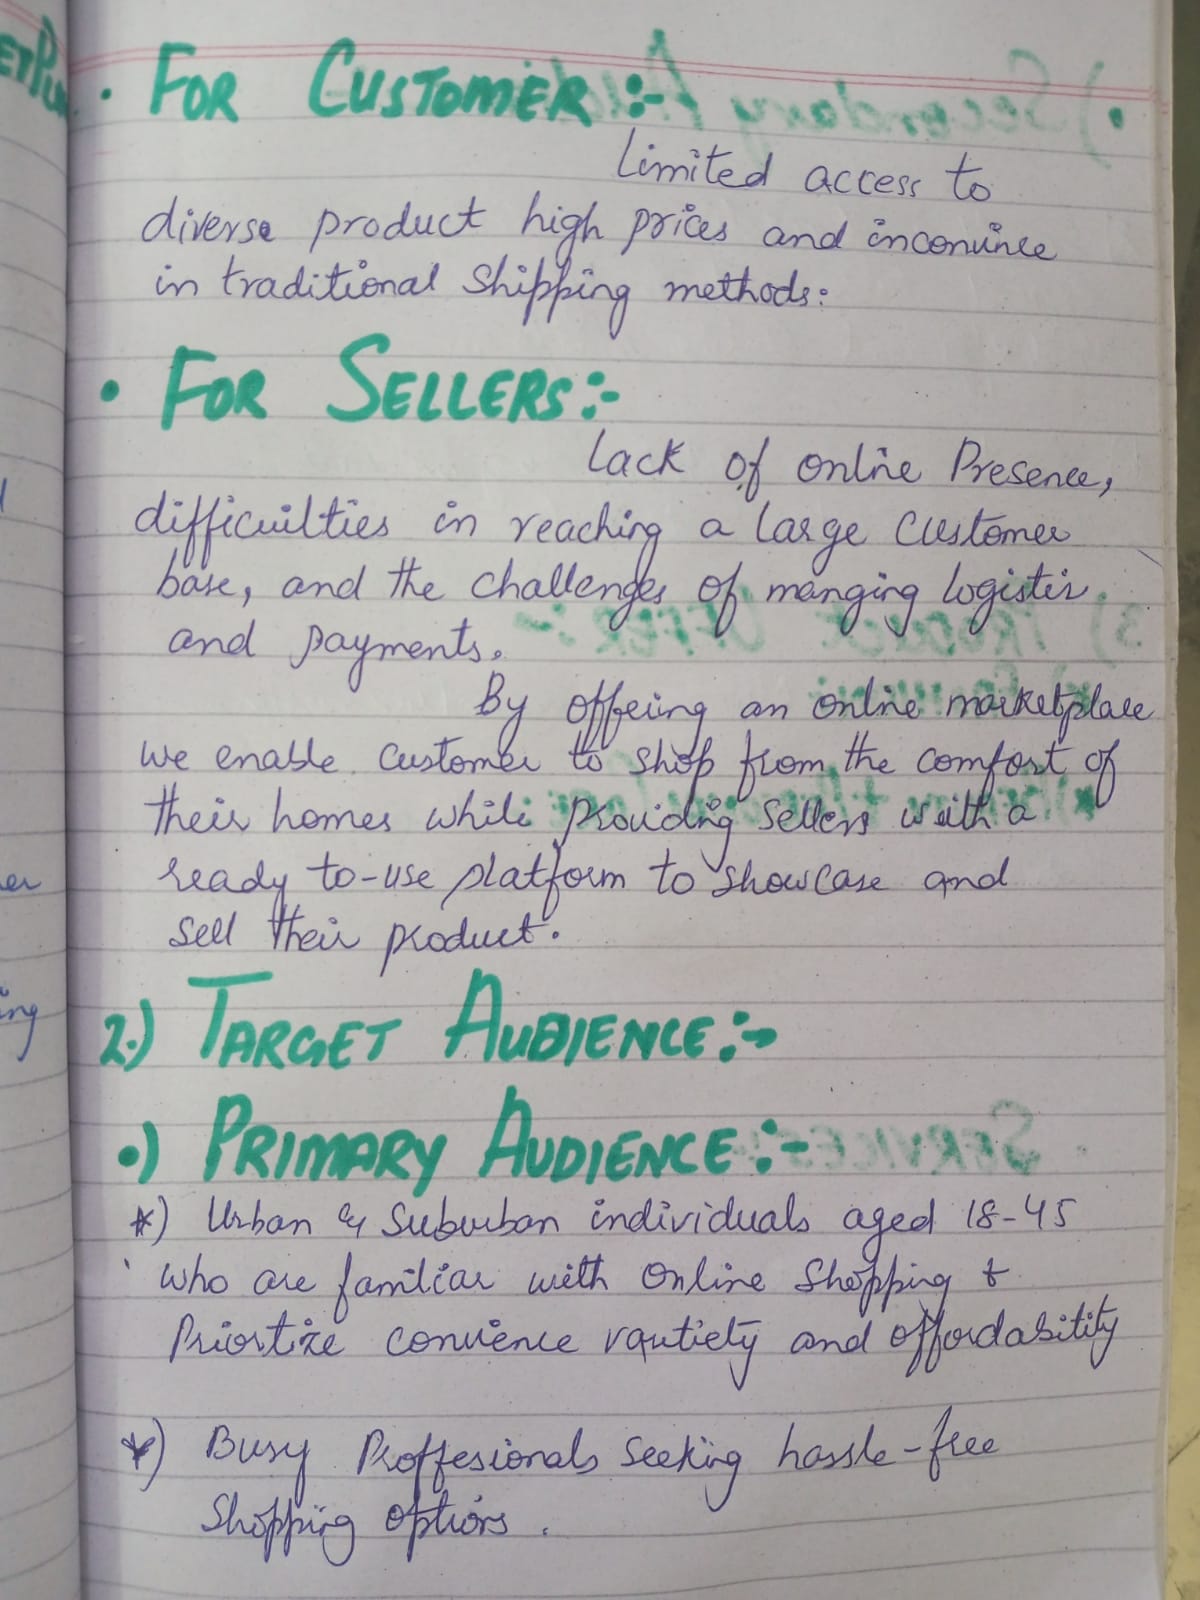 • FOR CUSTOMER :-
Limited access to
diverse product high prices and inconvince
in traditional Shipping methods:
• FOR SELLERS :-
Lack of online Presence,
difficuilties in reaching a large Customer
base, and the challenges of manging logistis.
and payments.
By offeing an online marketplace
we enable Customer to shop from the comfort of
their homes while providing Sellers with a
ready to-use platform to showcase and
sell their product.
2.) TARGET AUDIENCE :-
•) PRIMARY AUDIENCE :-
*) Urban & Suburban individuals aged 18-45
who are familiar with Online Shopping &
Priortize convience vqutiety and offordability
*) Busy Proffesionals Seeking hassle-free
Shopping options.